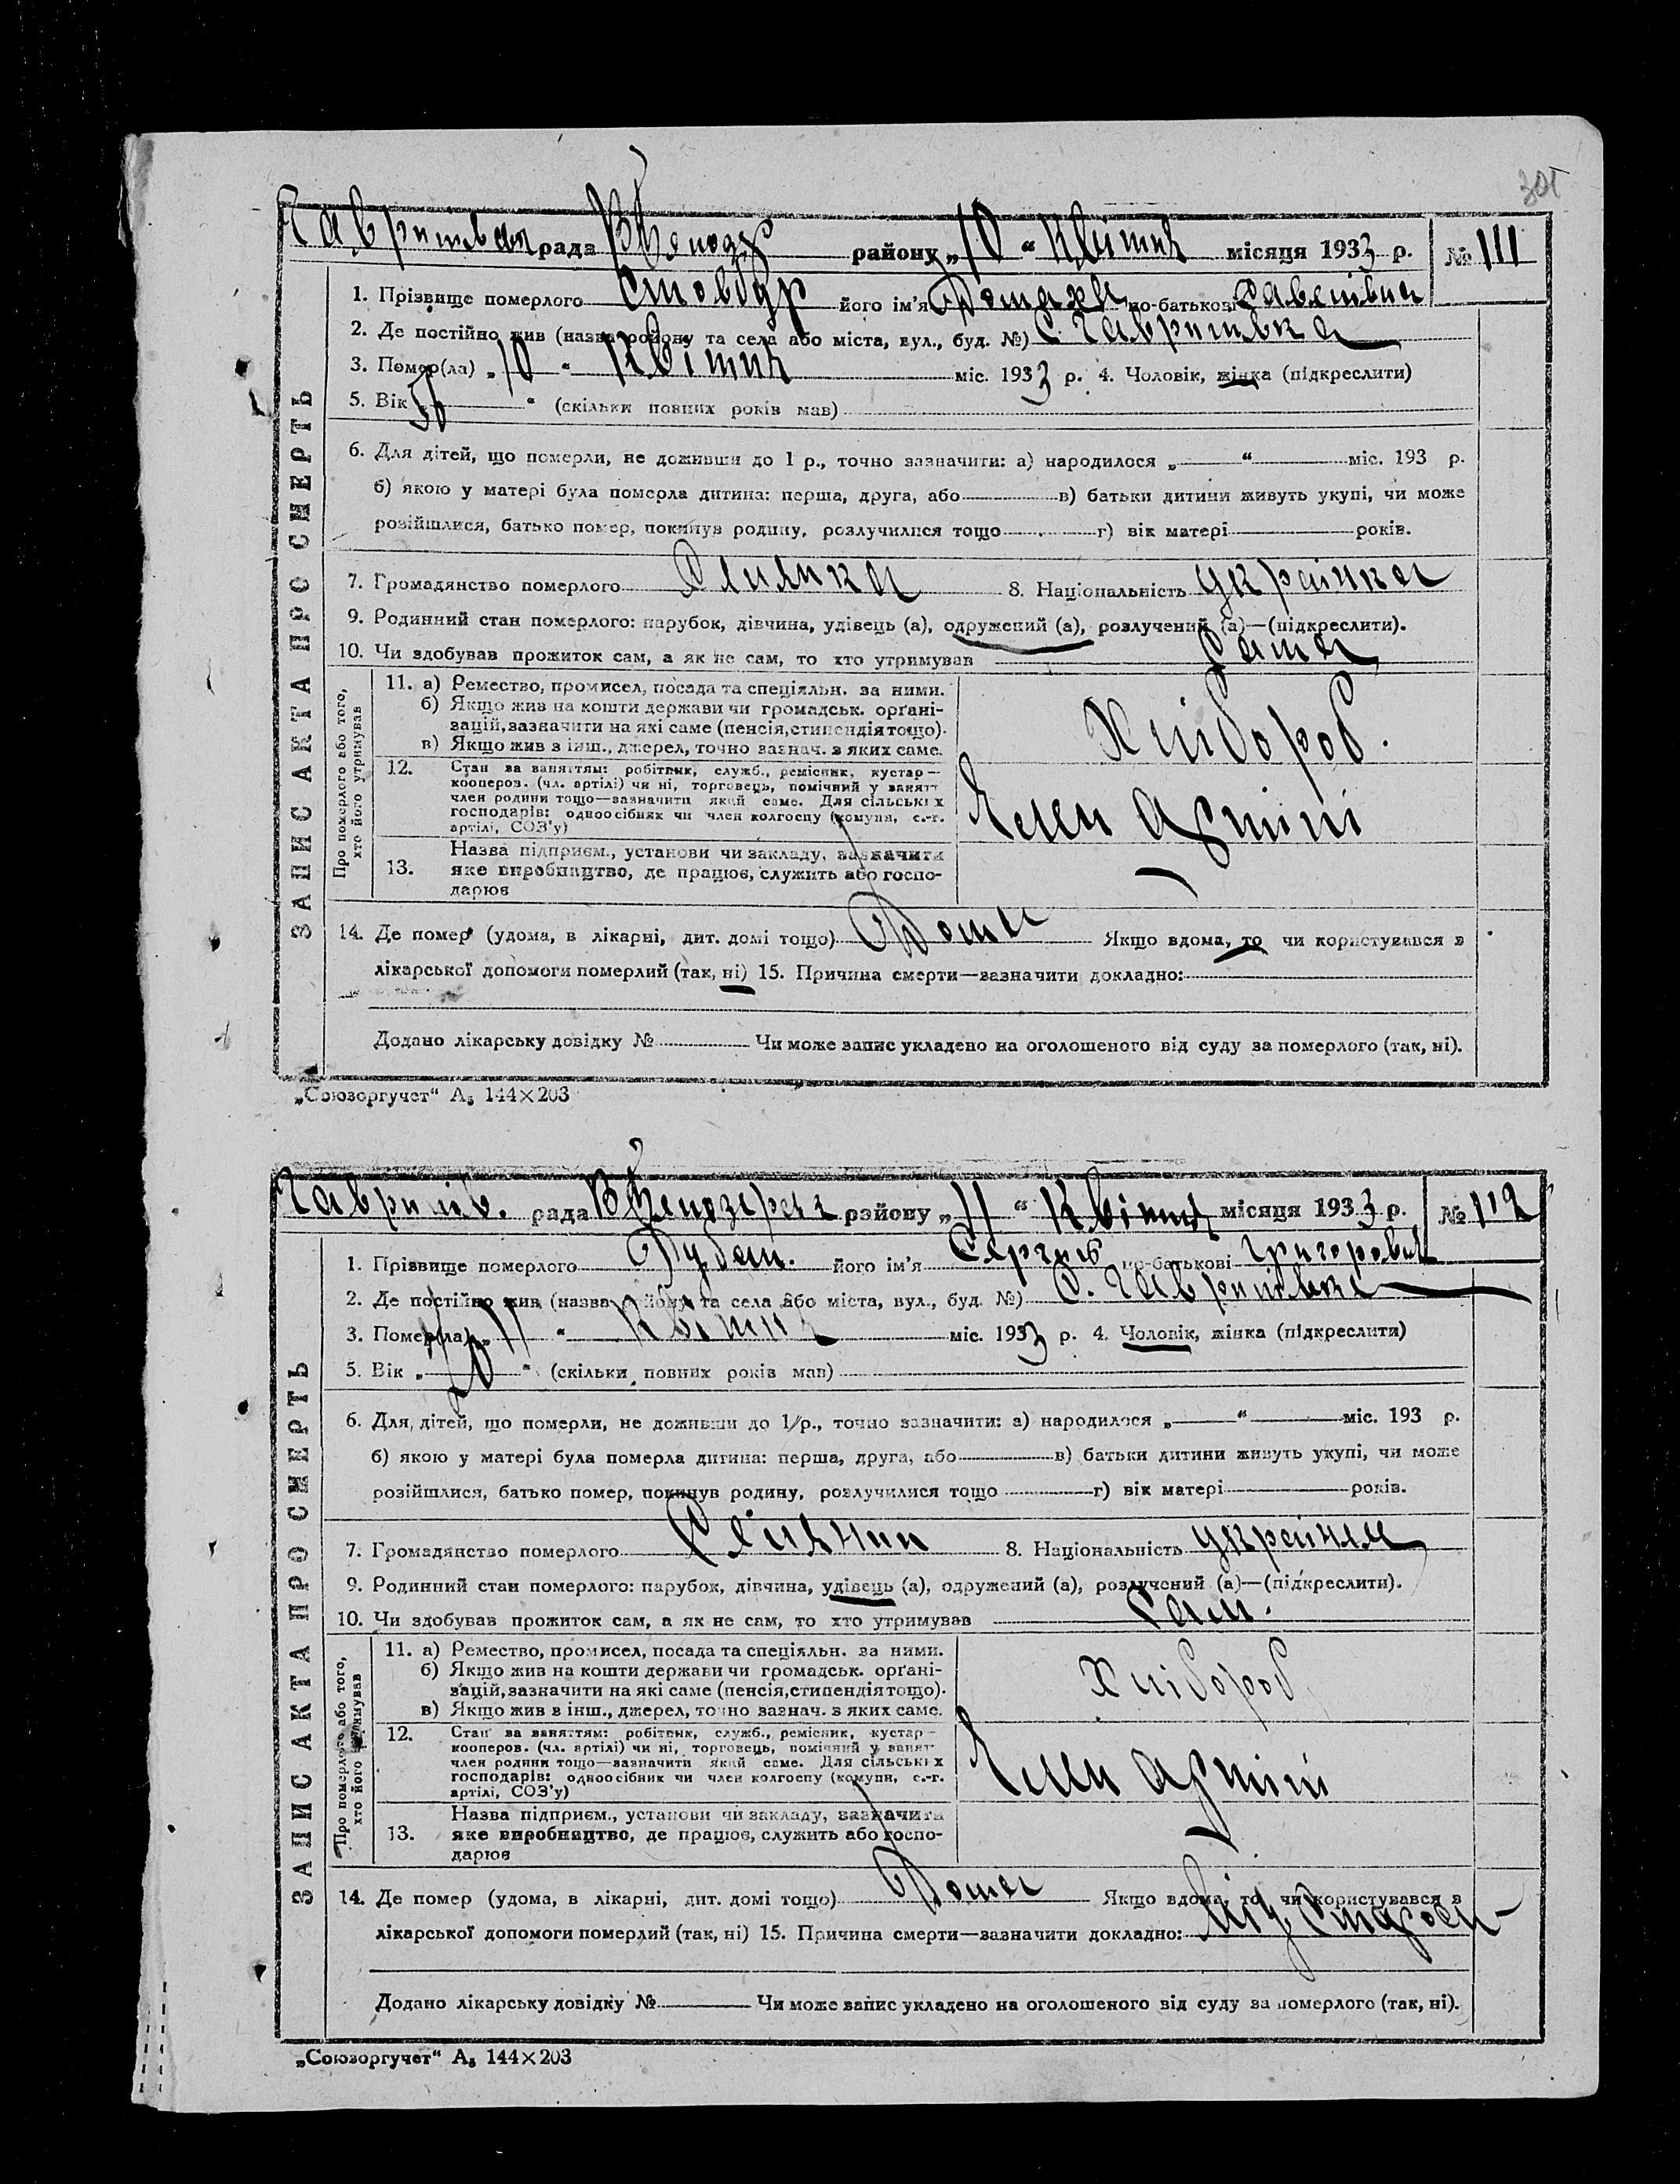 301
Гавришівська рада району „10“ Квітня місяця 1933 р. № 111
ЗАПИС АКТА ПРО СМЕРТЬ
1. Прізвище померлого Стовбур його ім'я Домаха по-батькові Савелівна
2. Де постійно жив (назва району та села або міста, вул., буд. №) С. Гавришівка
3. Помер(ла) „10“ Квітня міс. 1933 р. 4. Чоловік, жінка (підкреслити)
5. Вік „ “ (скільки повних років мав)
6. Для дітей, що померли, не доживши до 1 р., точно зазначити: а) народилося „ “ міс. 193 р.
б) якою у матері була померла дитина: перша, друга, або в) батьки дитини живуть укупі, чи може
розійшлися, батько помер, покинув родину, розлучилися тощо г) вік матері років.
7. Громадянство померлого 8. Національність українка
9. Родинний стан померлого: парубок, дівчина, удівець (а), одружений (а), розлучений (а)—(підкреслити).
10. Чи здобував прожиток сам, а як не сам, то хто утримував Сама
Про померлого або того,
хто його утримував
11. а) Ремество, промисел, посада та спеціяльн. за ними.
б) Якщо жив на кошти держави чи громадськ. орґані-
зацій, зазначити на які саме (пенсія, стипендія тощо).
в) Якщо жив з інш., джерел, точно зазнач. з яких саме.
Хлібороб.
12. Стан за заняттям: робітник, служб., ремісник, кустар—
коопероз. (чл. артілі) чи ні, торговець, помічний у занятт
член родини тощо—зазначити який саме. Для сільських
господарів: одноосібник чи член колгоспу (комуни, с.-г.
артілі, СОЗ'у)
Член артілі
13. Назва підприєм., установи чи закладу, зазначити
яке виробництво, де працює, служить або госпо-
дарює
14. Де помер (удома, в лікарні, дит. домі тощо) Дома Якщо вдома, то чи користувався з
лікарської допомоги померлий (так, ні) 15. Причина смерти—зазначити докладно:
Додано лікарську довідку № Чи може запис укладено на оголошеного від суду за померлого (так, ні).
„Союзоргучет“ А₅ 144×203
Гавришів. рада району „11“ Квітня місяця 1933 р. № 112
ЗАПИС АКТА ПРО СМЕРТЬ
1. Прізвище померлого його ім'я Сергій по-батькові Григорович
2. Де постійно жив (назва району та села або міста, вул., буд. №) С. Гавришівка
3. Помер(ла) „11“ Квітня міс. 1933 р. 4. Чоловік, жінка (підкреслити)
5. Вік „ “ (скільки повних років мав)
6. Для дітей, що померли, не доживши до 1 р., точно зазначити: а) народилося „ “ міс. 193 р.
б) якою у матері була померла дитина: перша, друга, або в) батьки дитини живуть укупі, чи може
розійшлися, батько помер, покинув родину, розлучилися тощо г) вік матері років.
7. Громадянство померлого 8. Національність
9. Родинний стан померлого: парубок, дівчина, удівець (а), одружений (а), розлучений (а)—(підкреслити).
10. Чи здобував прожиток сам, а як не сам, то хто утримував Сам.
Про померлого або того,
хто його утримував
11. а) Ремество, промисел, посада та спеціяльн. за ними.
б) Якщо жив на кошти держави чи громадськ. орґані-
зацій, зазначити на які саме (пенсія, стипендія тощо).
в) Якщо жив в інш., джерел, точно зазнач. з яких саме.
Хлібороб
12. Стан за заняттям: робітник, служб., ремісник, кустар—
кооперов. (чл. артілі) чи ні, торговець, помічний у занятт
член родини тощо—зазначити який саме. Для сільських
господарів: одноосібник чи член колгоспу (комуни, с.-г.
артілі, СОЗ'у)
Член артілі
13. Назва підприєм., установи чи закладу, зазначити
яке виробництво, де працює, служить або госпо-
дарює
14. Де помер (удома, в лікарні, дит. домі тощо) Дома Якщо вдома, то чи користувався з
лікарської допомоги померлий (так, ні) 15. Причина смерти—зазначити докладно: Від
Додано лікарську довідку № Чи може запис укладено на оголошеного від суду за померлого (так, ні).
„Союзоргучет“ А₅ 144×203